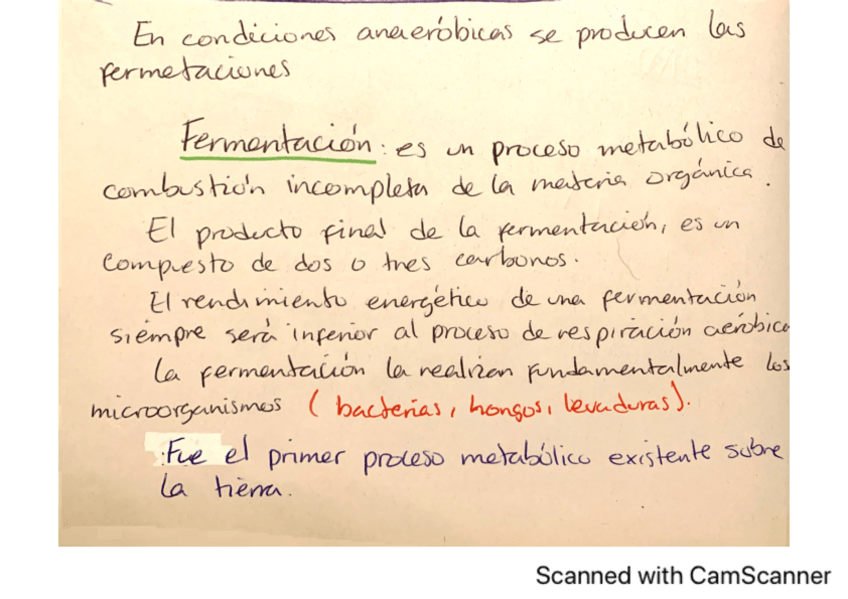 En condiciones anaeróbicas se producen las
fermetaciones
Fermentación: es un proceso metabólico de
combustión incompleta de la materia orgánica.
El producto final de la fermentación, es un
compuesto de dos o tres carbonos.
El rendimiento energético de una fermentación
siempre será inferior al proceso de respiración aeróbica
La fermentación la realizan fundamentalmente los
microorganismos (bacterias, hongos, levaduras).
Fue el primer proceso metabólico existente sobre
la tierra.
Scanned with CamScanner